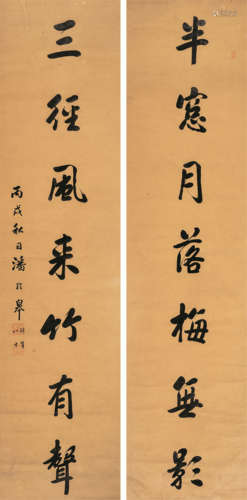 半窻月落梅無影
三徑風来竹有聲
丙戌秋日潘於皋